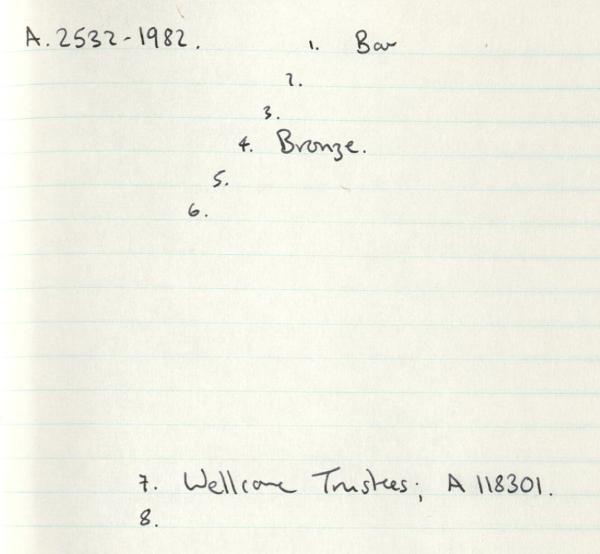 A. 2532-1982. 1. Bar
2.
3.
4. Bronze.
5.
6.
7. Wellcome Trustees; A 118301.
8.